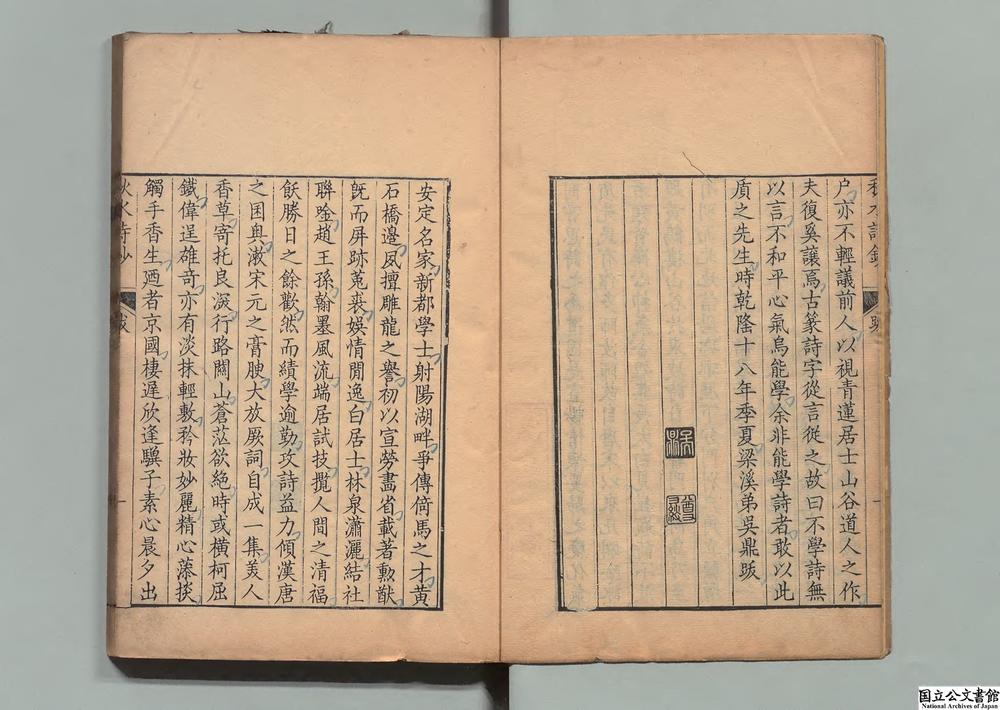 户亦不輕議前人以視青蓮居士山谷道人之作
夫復奚讓焉古篆詩字從言從之故曰不學詩無
以言不和平心氣烏能學余非能學詩者敢以此
質之先生時乾隆十八年季夏梁溪弟吳鼎䟦
安定名家新都學士射陽湖畔爭傳倚馬之才黃
石橋邊夙擅雕龍之譽初以宣勞畵省載著勳猷
旣而屏跡菟裘娛情閒逸白居士林泉瀟灑結社
聯唫趙王孫翰墨風流端居試技攬人間之清福
飫勝日之餘歡然而績學逾勤攻詩益力傾漢唐
之囷奥漱宋元之膏腴大放厥詞自成一集美人
香草寄托良深行路關山蒼茫欲絶時或橫柯屈
鐵偉逞雄奇亦有淡抹輕敷矜妝妙麗精心藻掞
觸手香生廼者京國棲遲欣逢驥子素心晨夕出
国立公文書館
National Archives of Japan